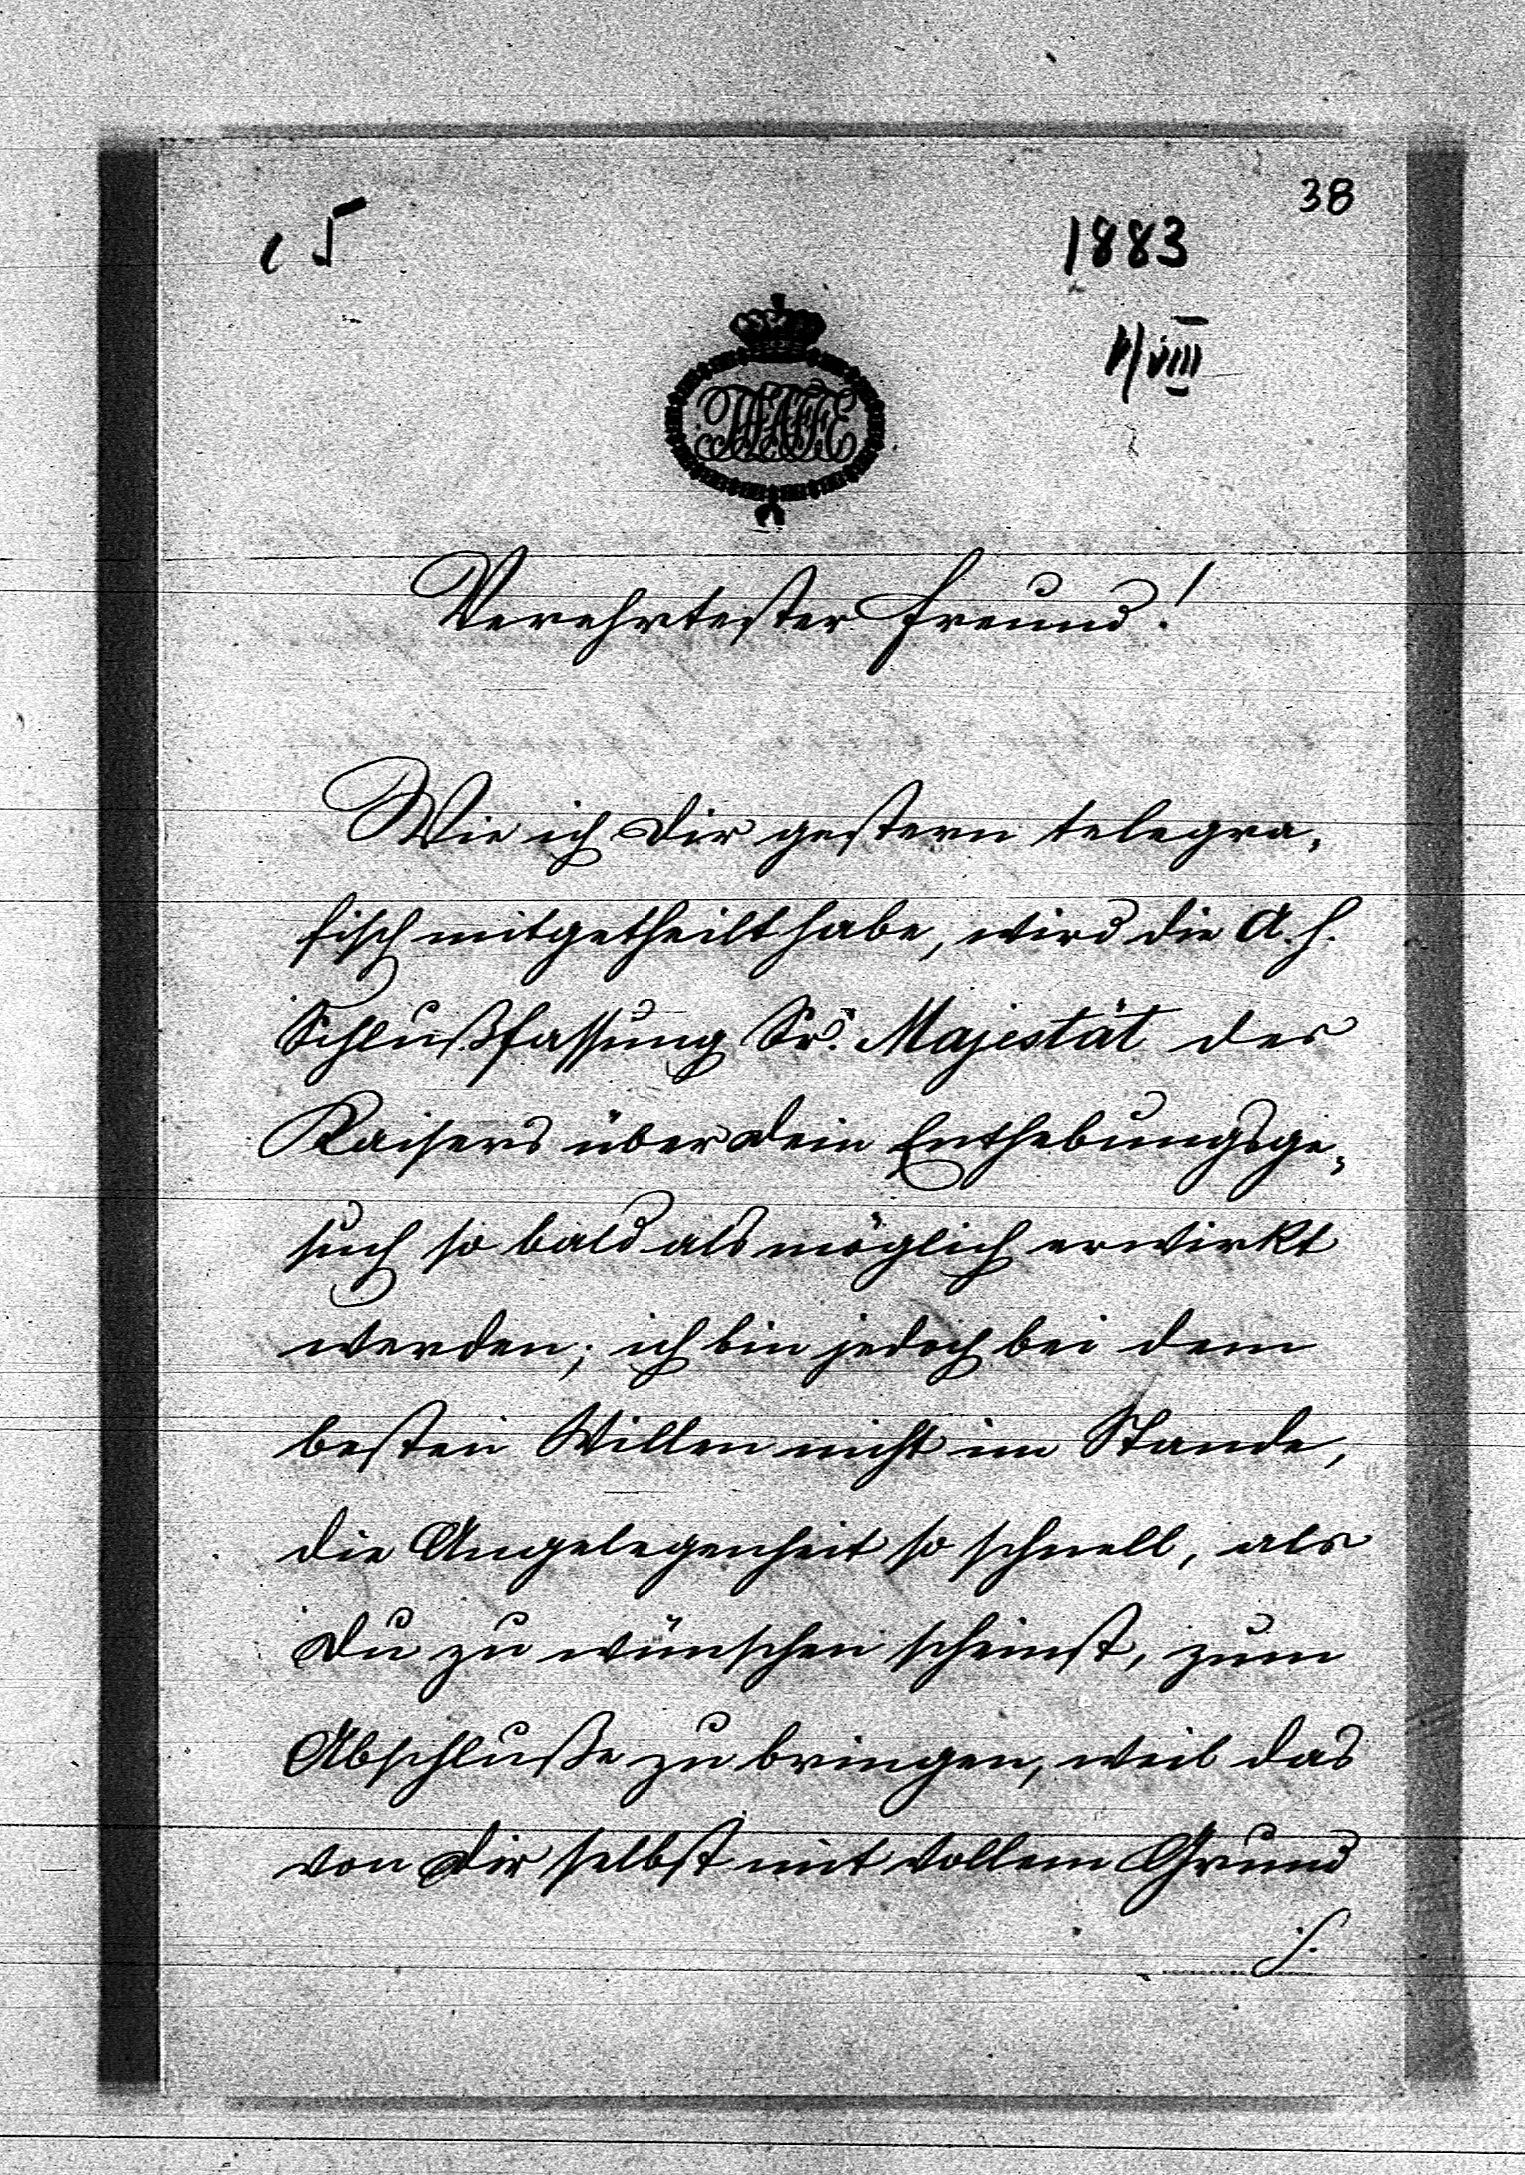 38
15
1883
1/VIII
TAAFFE
Verehrtester Freund!
Wie ich Dir gestern telegra„
fisch mitgetheilt habe, wird die A. h.
Schlußfassung Sr. Majestät des
Kaisers über Dein Enthebungsge„
such so bald als möglich erwirkt
werden; ich bin jedoch bei dem
besten Willen nicht im Stande,
die Angelegenheit so schnell, als
Du zu wünschen scheinst, zum
Abschluße zu bringen, weil das
von Dir selbst mit vollem Grund